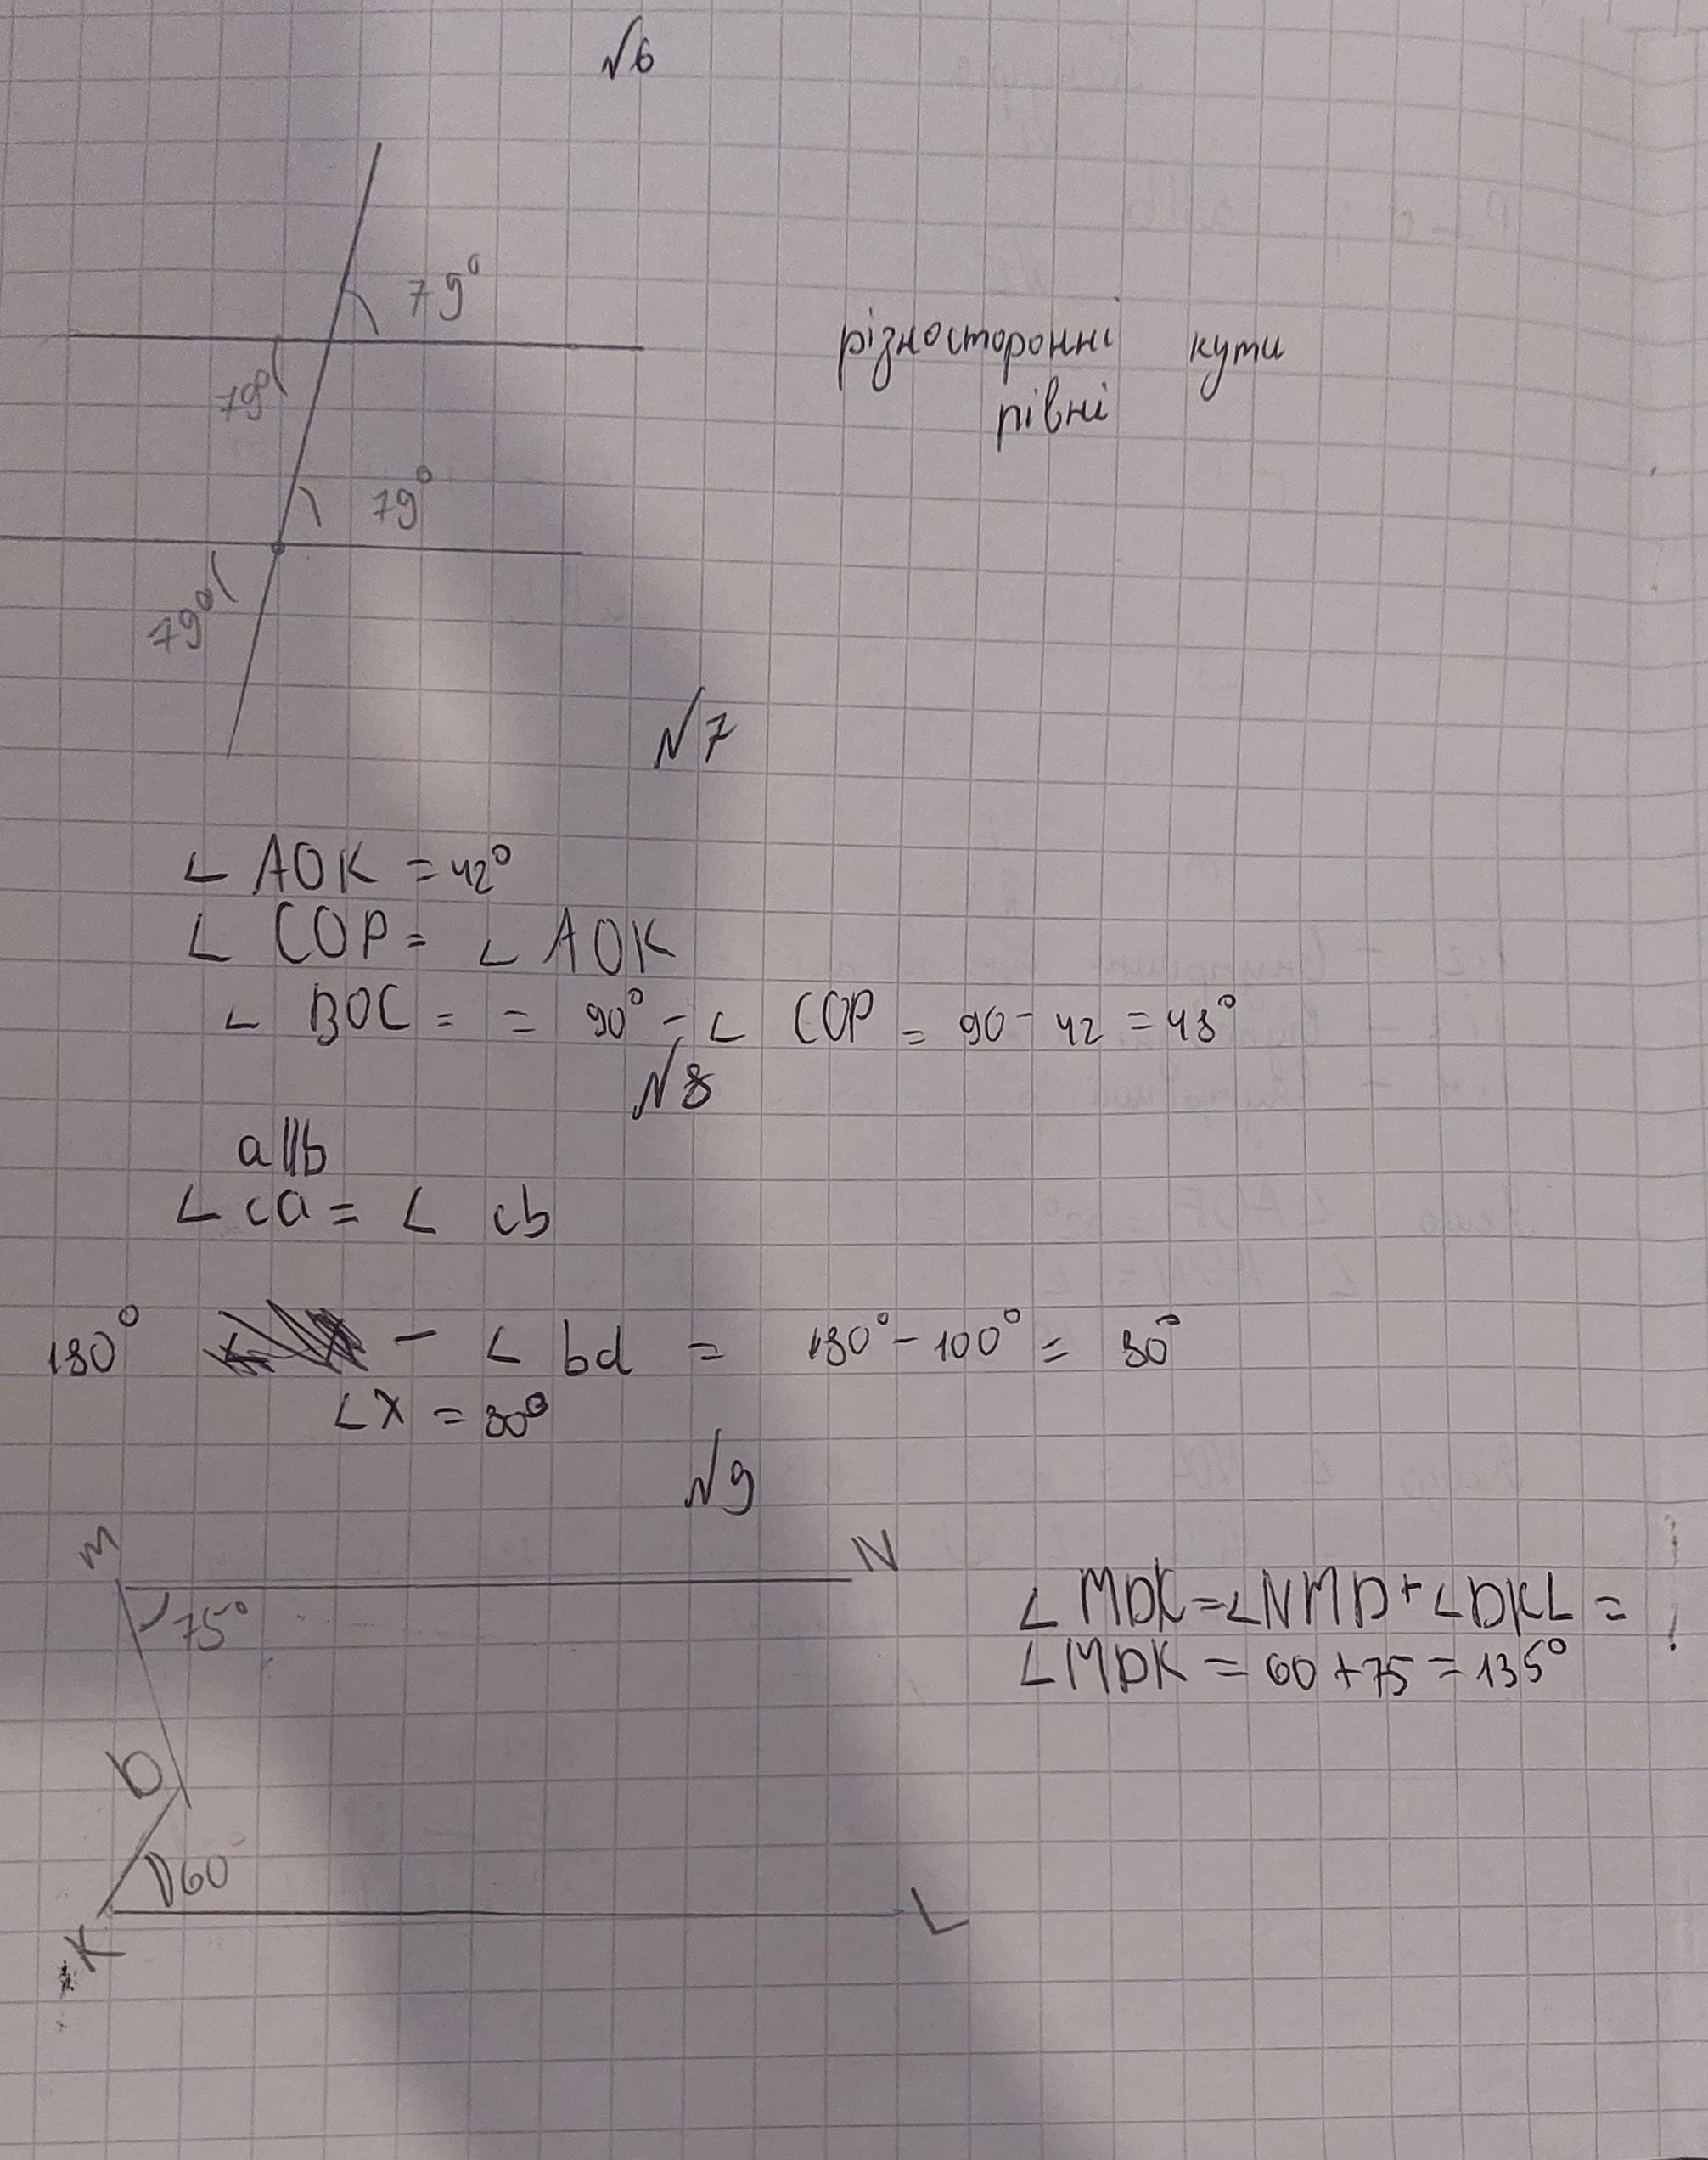 №6
79°
79°
різносторонні кути
рівні
79°
79°
№7
∠ AOK = 42°
∠ COP = ∠ AOK
∠ BOC = = 90° - ∠ COP = 90 - 42 = 48°
№8
a||b
∠ ca = ∠ cb
180° - ∠ bd = 180° - 100° = 80°
∠X = 80°
№9
M N
75°
∠ MDK = ∠NMD + ∠DKL =
∠MDK = 60 + 75 = 135°
D
60°
K L